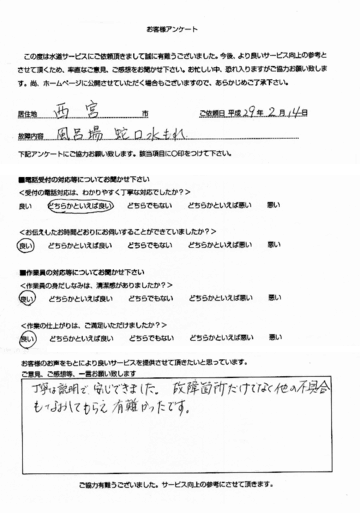 お客様アンケート
この度は水道サービスにご依頼頂きまして誠に有難うございました。今後、より良いサービス向上の参考と
させて頂くため、率直なご意見、ご感想をお聞かせ下さい。お忙しい中、恐れ入りますがご協力お願い致しま
す。尚、ホームページに公開させていただく場合もございますので、あらかじめご了承下さい。
居住地 西宮 市 ご依頼日 平成29年2月14日
故障内容 風呂場 蛇口水もれ
下記アンケートにご協力お願い致します。該当項目に〇印をつけて下さい。
■電話受付の対応等についてお聞かせ下さい
<受付の電話対応は、わかりやすく丁寧な対応でしたか?>
良い どちらかといえば良い どちらでもない どちらかといえば悪い 悪い
<お伝えしたお時間どおりにお伺いすることができていましたか?>
良い どちらかといえば良い どちらでもない どちらかといえば悪い 悪い
■作業員の対応等についてお聞かせ下さい
<作業員の身だしなみは、清潔感がありましたか?>
良い どちらかといえば良い どちらでもない どちらかといえば悪い 悪い
<作業の仕上がりは、ご満足いただけましたか?>
良い どちらかといえば良い どちらでもない どちらかといえば悪い 悪い
お客様のお声をもとにより良いサービスを提供させて頂きたいと思っています。
ご意見、ご感想等、一言お願い致します
丁寧な説明で、安心できました。故障箇所だけでなく他の不具合
もてもらえ有難かったです。
ご協力有難うございました。サービス向上の参考にさせて頂きます。